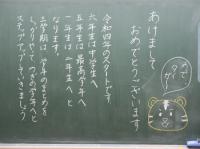 あけまして
おめでとうございます
令和四年のスタートです
六年生は中学生へ
五年生は最高学年へ
一年生は二年生へと
なります。
三学期は、学年のまとめを
しっかりやって、つぎの学年へと
ステップアップしていきましょう